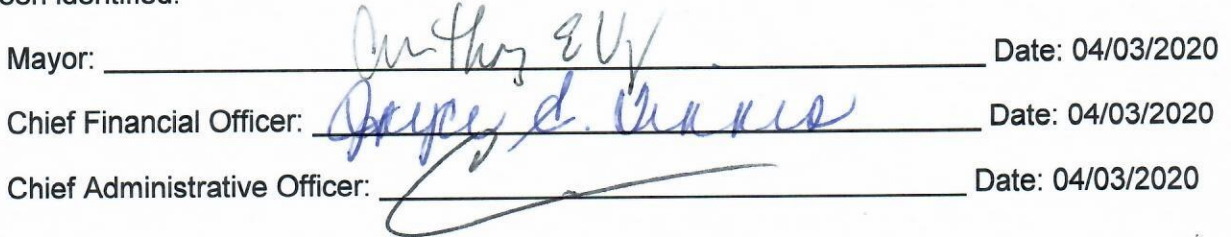 identified.
Mayor: Date: 04/03/2020
Chief Financial Officer: Joyce C. Date: 04/03/2020
Chief Administrative Officer: Date: 04/03/2020